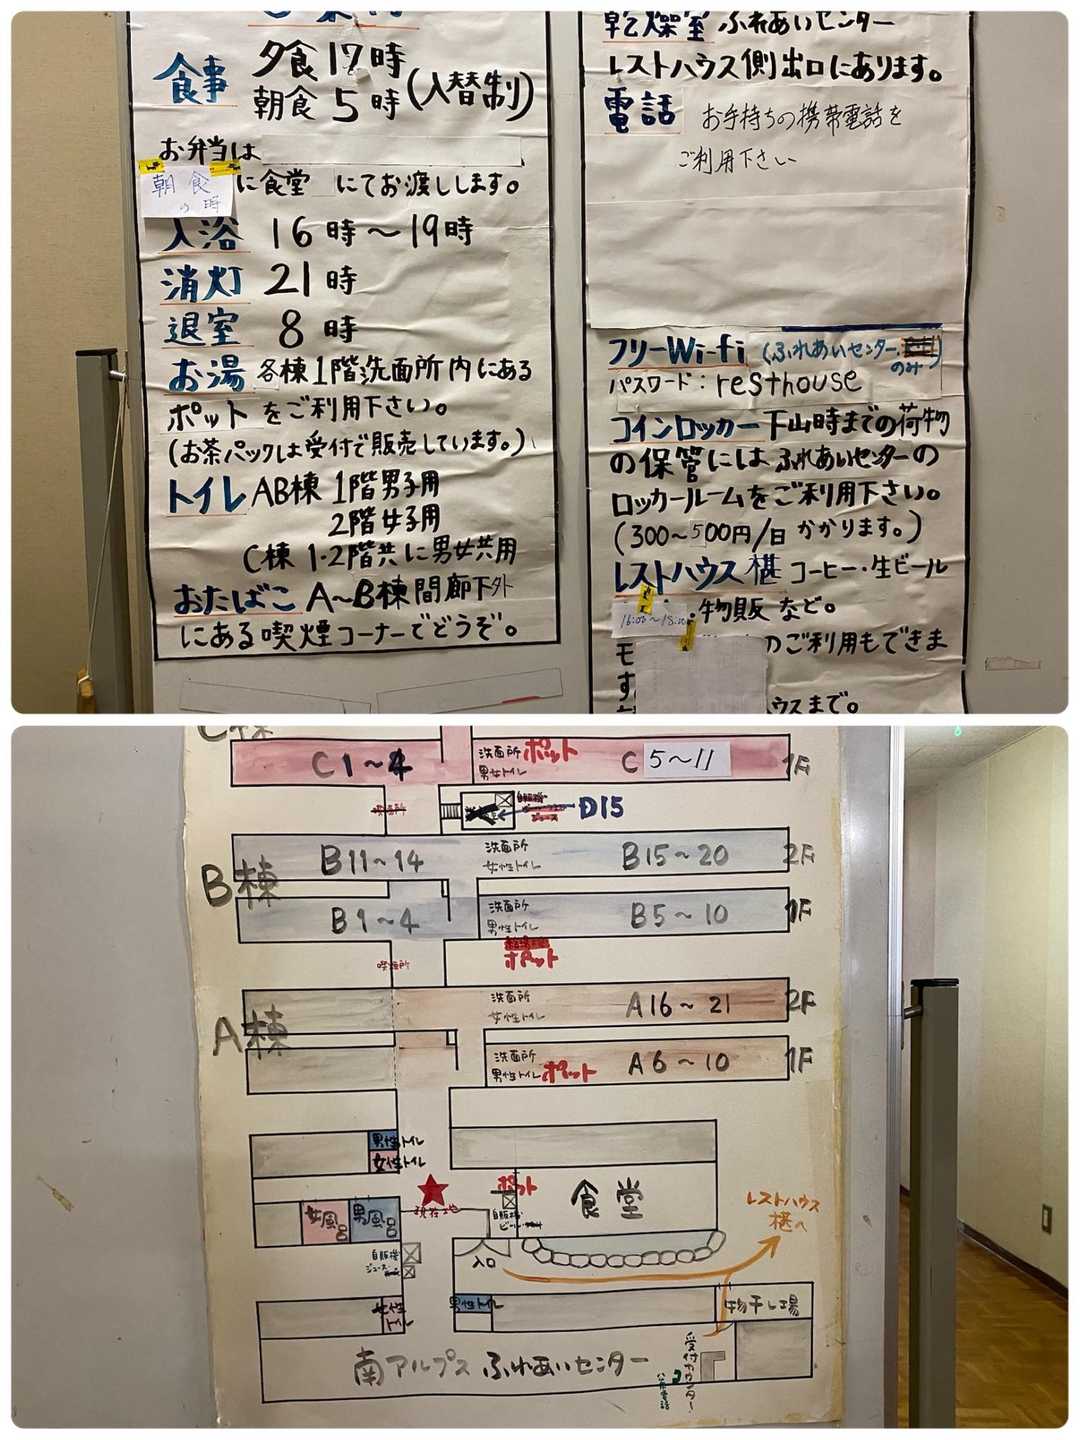 食事 夕食17時
朝食5時(入替制)
お弁当は
朝食の時に食堂にてお渡しします。
入浴 16時〜19時
消灯 21時
退室 8時
お湯 各棟1階洗面所内にある
ポットをご利用下さい。
(お茶パックは受付で販売しています。)
トイレ AB棟 1階男子用
2階女子用
C棟 1・2階共に男女共用
おたばこ A〜B棟間廊下外
にある喫煙コーナーでどうぞ。
乾燥室 ふれあいセンター
レストハウス側出口にあります。
電話 お手持ちの携帯電話を
ご利用下さい
フリーWi-fi (ふれあいセンターのみ)
パスワード:resthouse
コインロッカー 下山時までの荷物
の保管にはふれあいセンターの
ロッカールームをご利用下さい。
(300〜500円/日 かかります。)
レストハウス椹 コーヒー・生ビール
物販など。
16:00〜18:00
のご利用もできま
す
ウスまで。
C棟
C1〜4 洗面所 ポット 男女トイレ C5〜11 1F
喫煙所 自販機 D15
B棟
B11〜14 洗面所 女性トイレ B15〜20 2F
B1〜4 洗面所 男性トイレ B5〜10 1F
喫煙所 ポット
A棟
洗面所 女性トイレ A16〜21 2F
洗面所 男性トイレ ポット A6〜10 1F
男性トイレ
女性トイレ
現在地
ポット
食堂
女風呂 男風呂
自販機 ビール
レストハウス
椹へ
自販機
ジュース
入口
女性トイレ 男性トイレ 物干し場
南アルプスふれあいセンター
受付カウンター
公衆電話